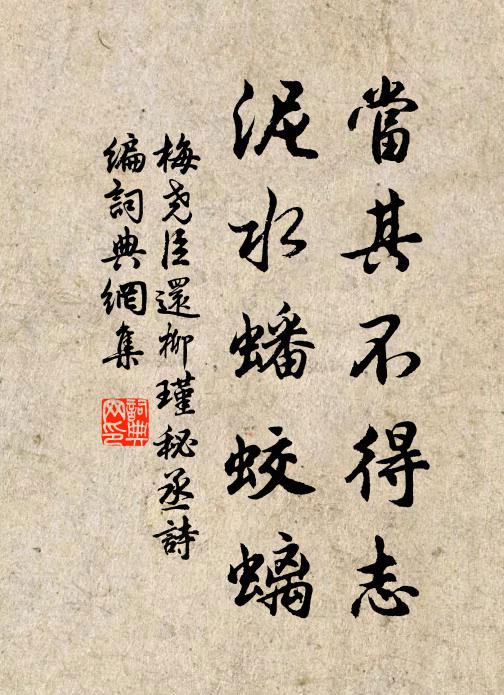 當其不得志
泥水蟠蛟螭
梅尧臣還柳瑾秘丞詩
編詞典網集
詞典
网印